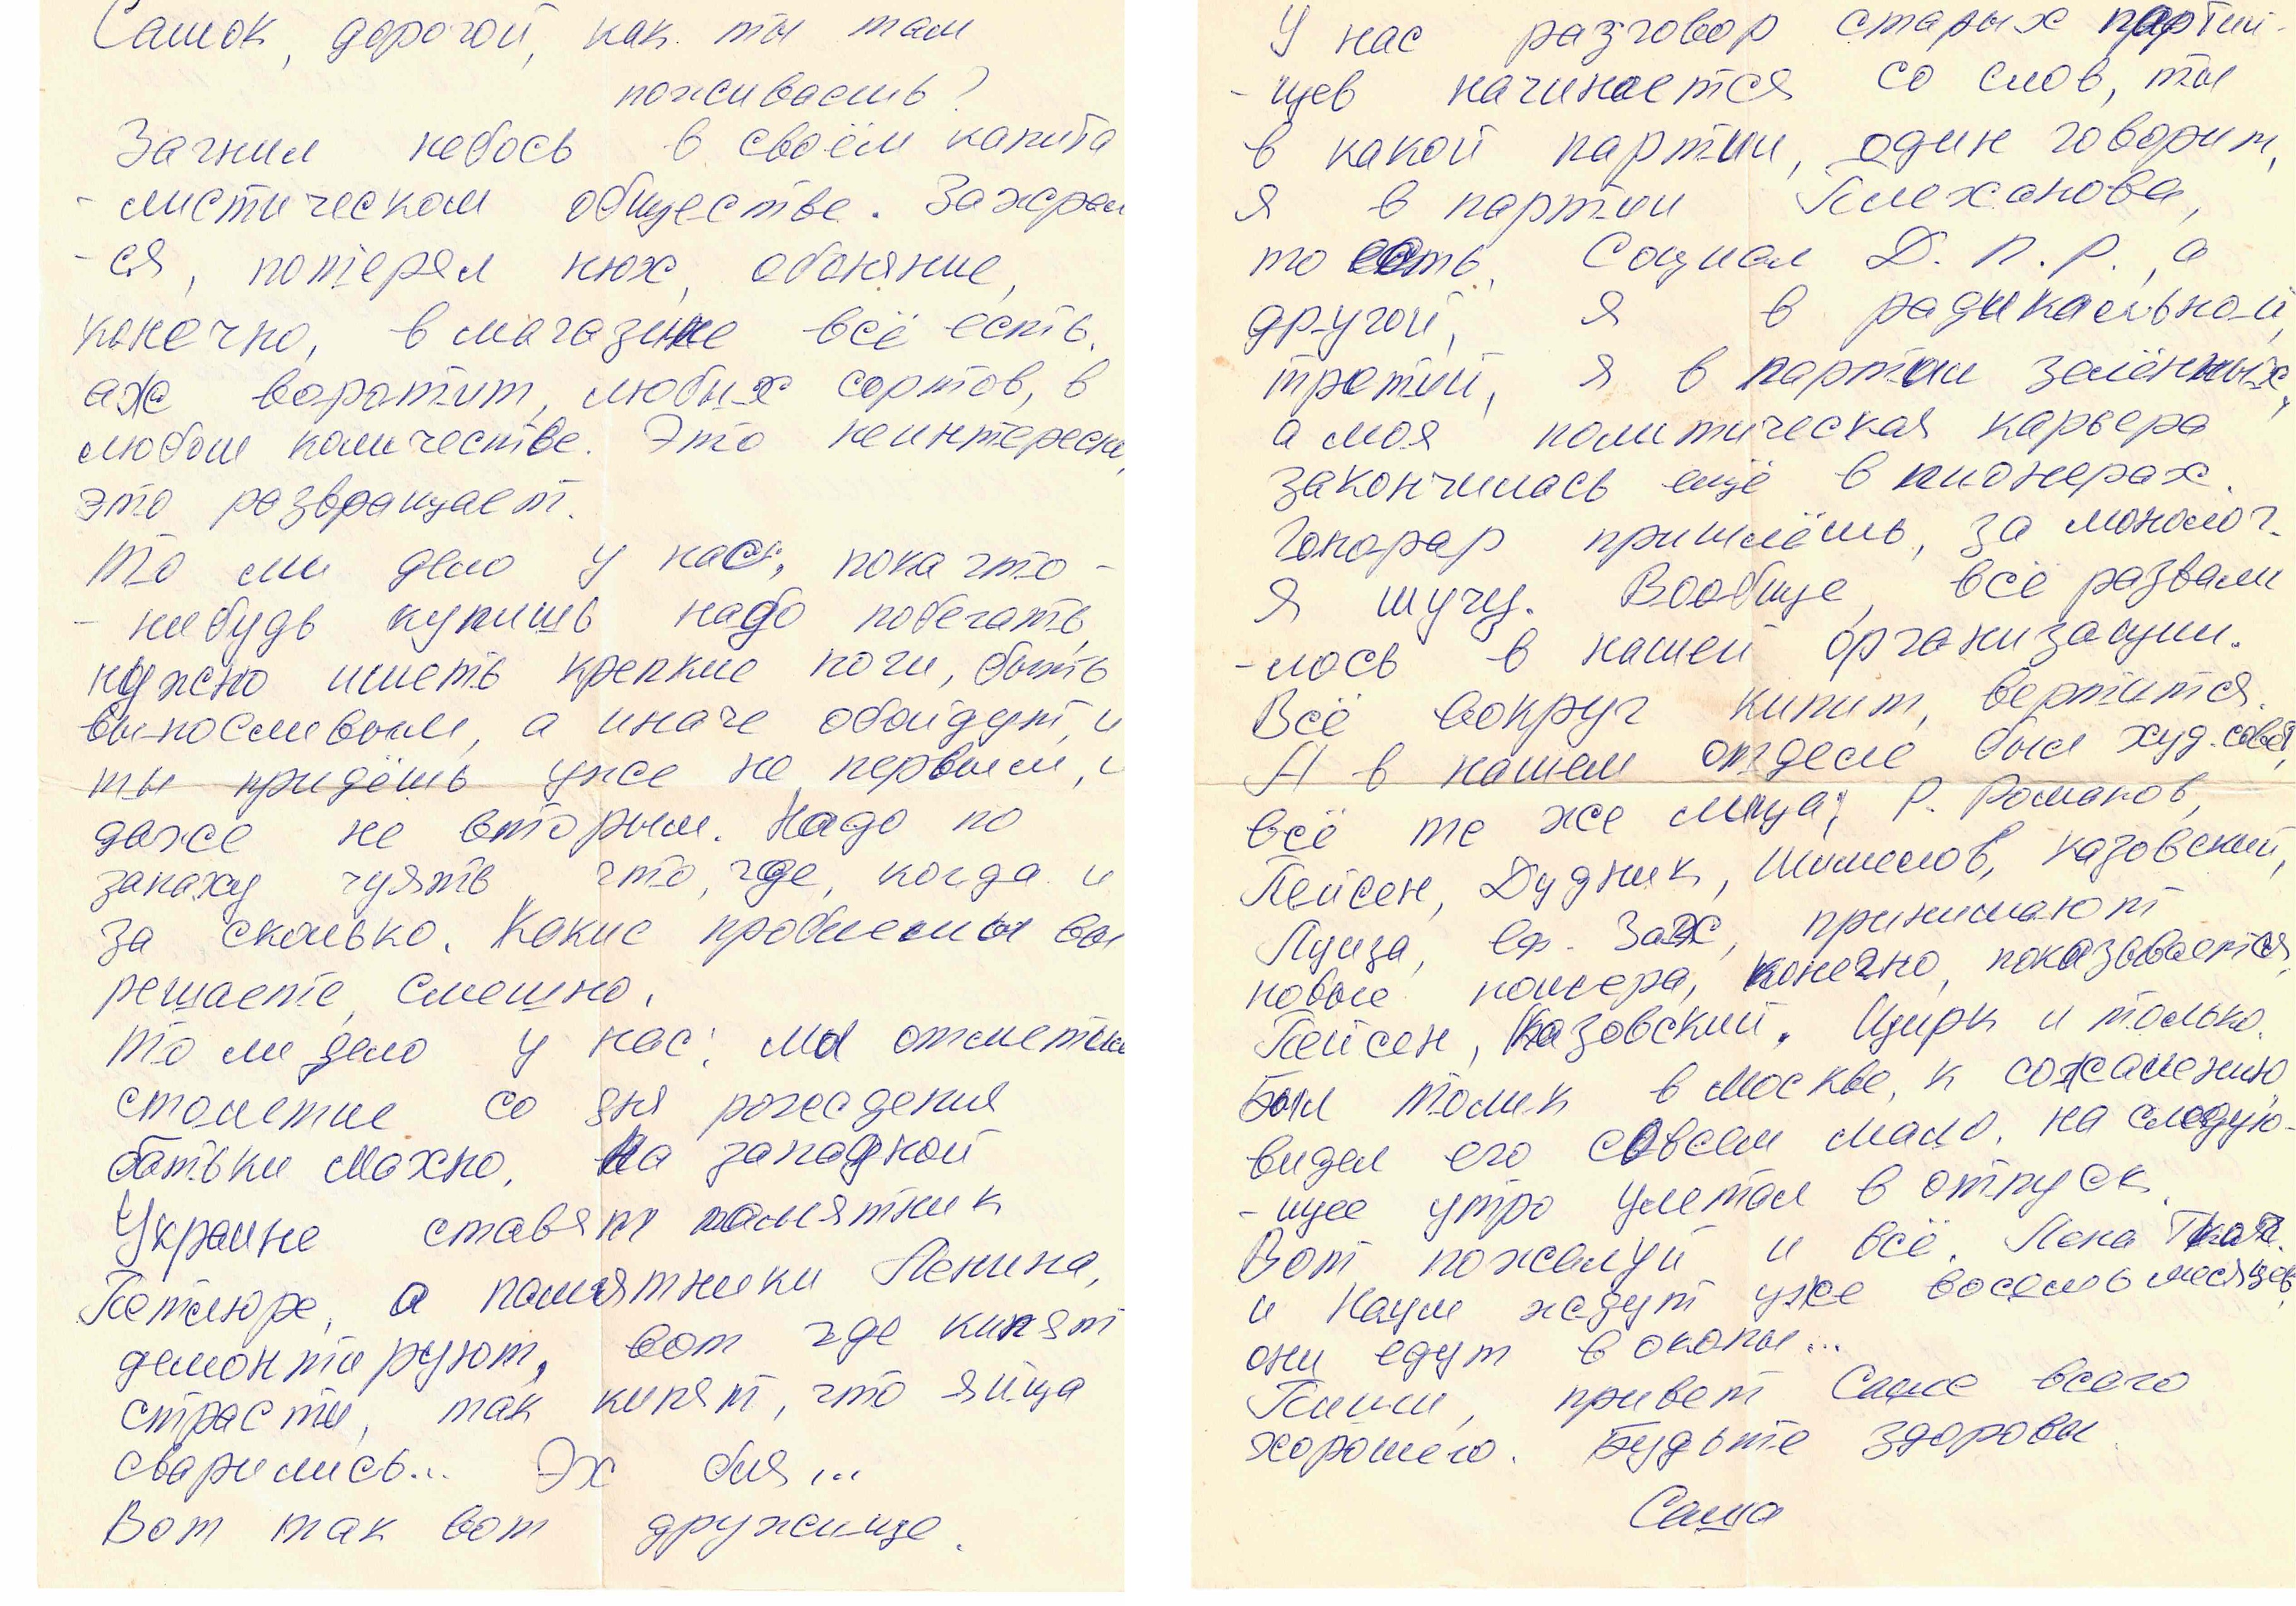 Сашок, дорогой, как ты там
поживаешь?
Загнил небось в своём капита
- листическом обществе. Зажрал
- ся, потерял нюх, обоняние,
конечно, в магазине всё есть.
аж воротит, любых сортов, в
любом количестве. Это неинтересно,
это развращает.
То ли дело у нас, пока что -
- нибудь купишь надо побегать,
нужно иметь крепкие ноги, быть
выносливым, а иначе обойдут, и
ты придёшь уже не первым, и
даже не вторым. Надо по
запаху чуять что, где, когда и
за сколько. Какие проблемы вы
решаете, смешно.
То ли дело у нас: мы отметили
столетие со дня рождения
батьки Махно. На западной
Украине ставят памятник
Петлюре, а памятники Ленина,
демонтируют, вот где кипят
страсти, так кипят, что яйца
сварились... Эх бля...
Вот так вот дружище.
У нас разговор старых партий-
- цев начинается со слов, ты
в какой партии, один говорит,
я в партии Плеханова,
то есть, Социал Д. П. Р., а
другой, я в радикальной,
третий, я в партии зелённых,
а моя политическая карьера
закончилась ещё в пионерах.
Гонорар пришлёшь, за монолог.
Я шучу. Вообще, всё развали
- лось в нашей организации.
Всё вокруг кипит, вертится.
А в нашем отделе был худ. совет,
всё те же лица; Р. Романов,
Лейсен, Дудник, Казовский,
Луиза, принимают
новые номера, конечно, показывается
Лейсен, Казовский. Цирк и только.
Был Толик в Москве, к сожалению
видел его совсем мало, на следую-
- щее утро улетал в отпуск.
Вот пожалуй и всё. Лена Ткач.
и Наум ждут уже восемь месяцев,
они едут в окопы...
Пиши, привет Саше всего
хорошего. Будьте здоровы.
Саша